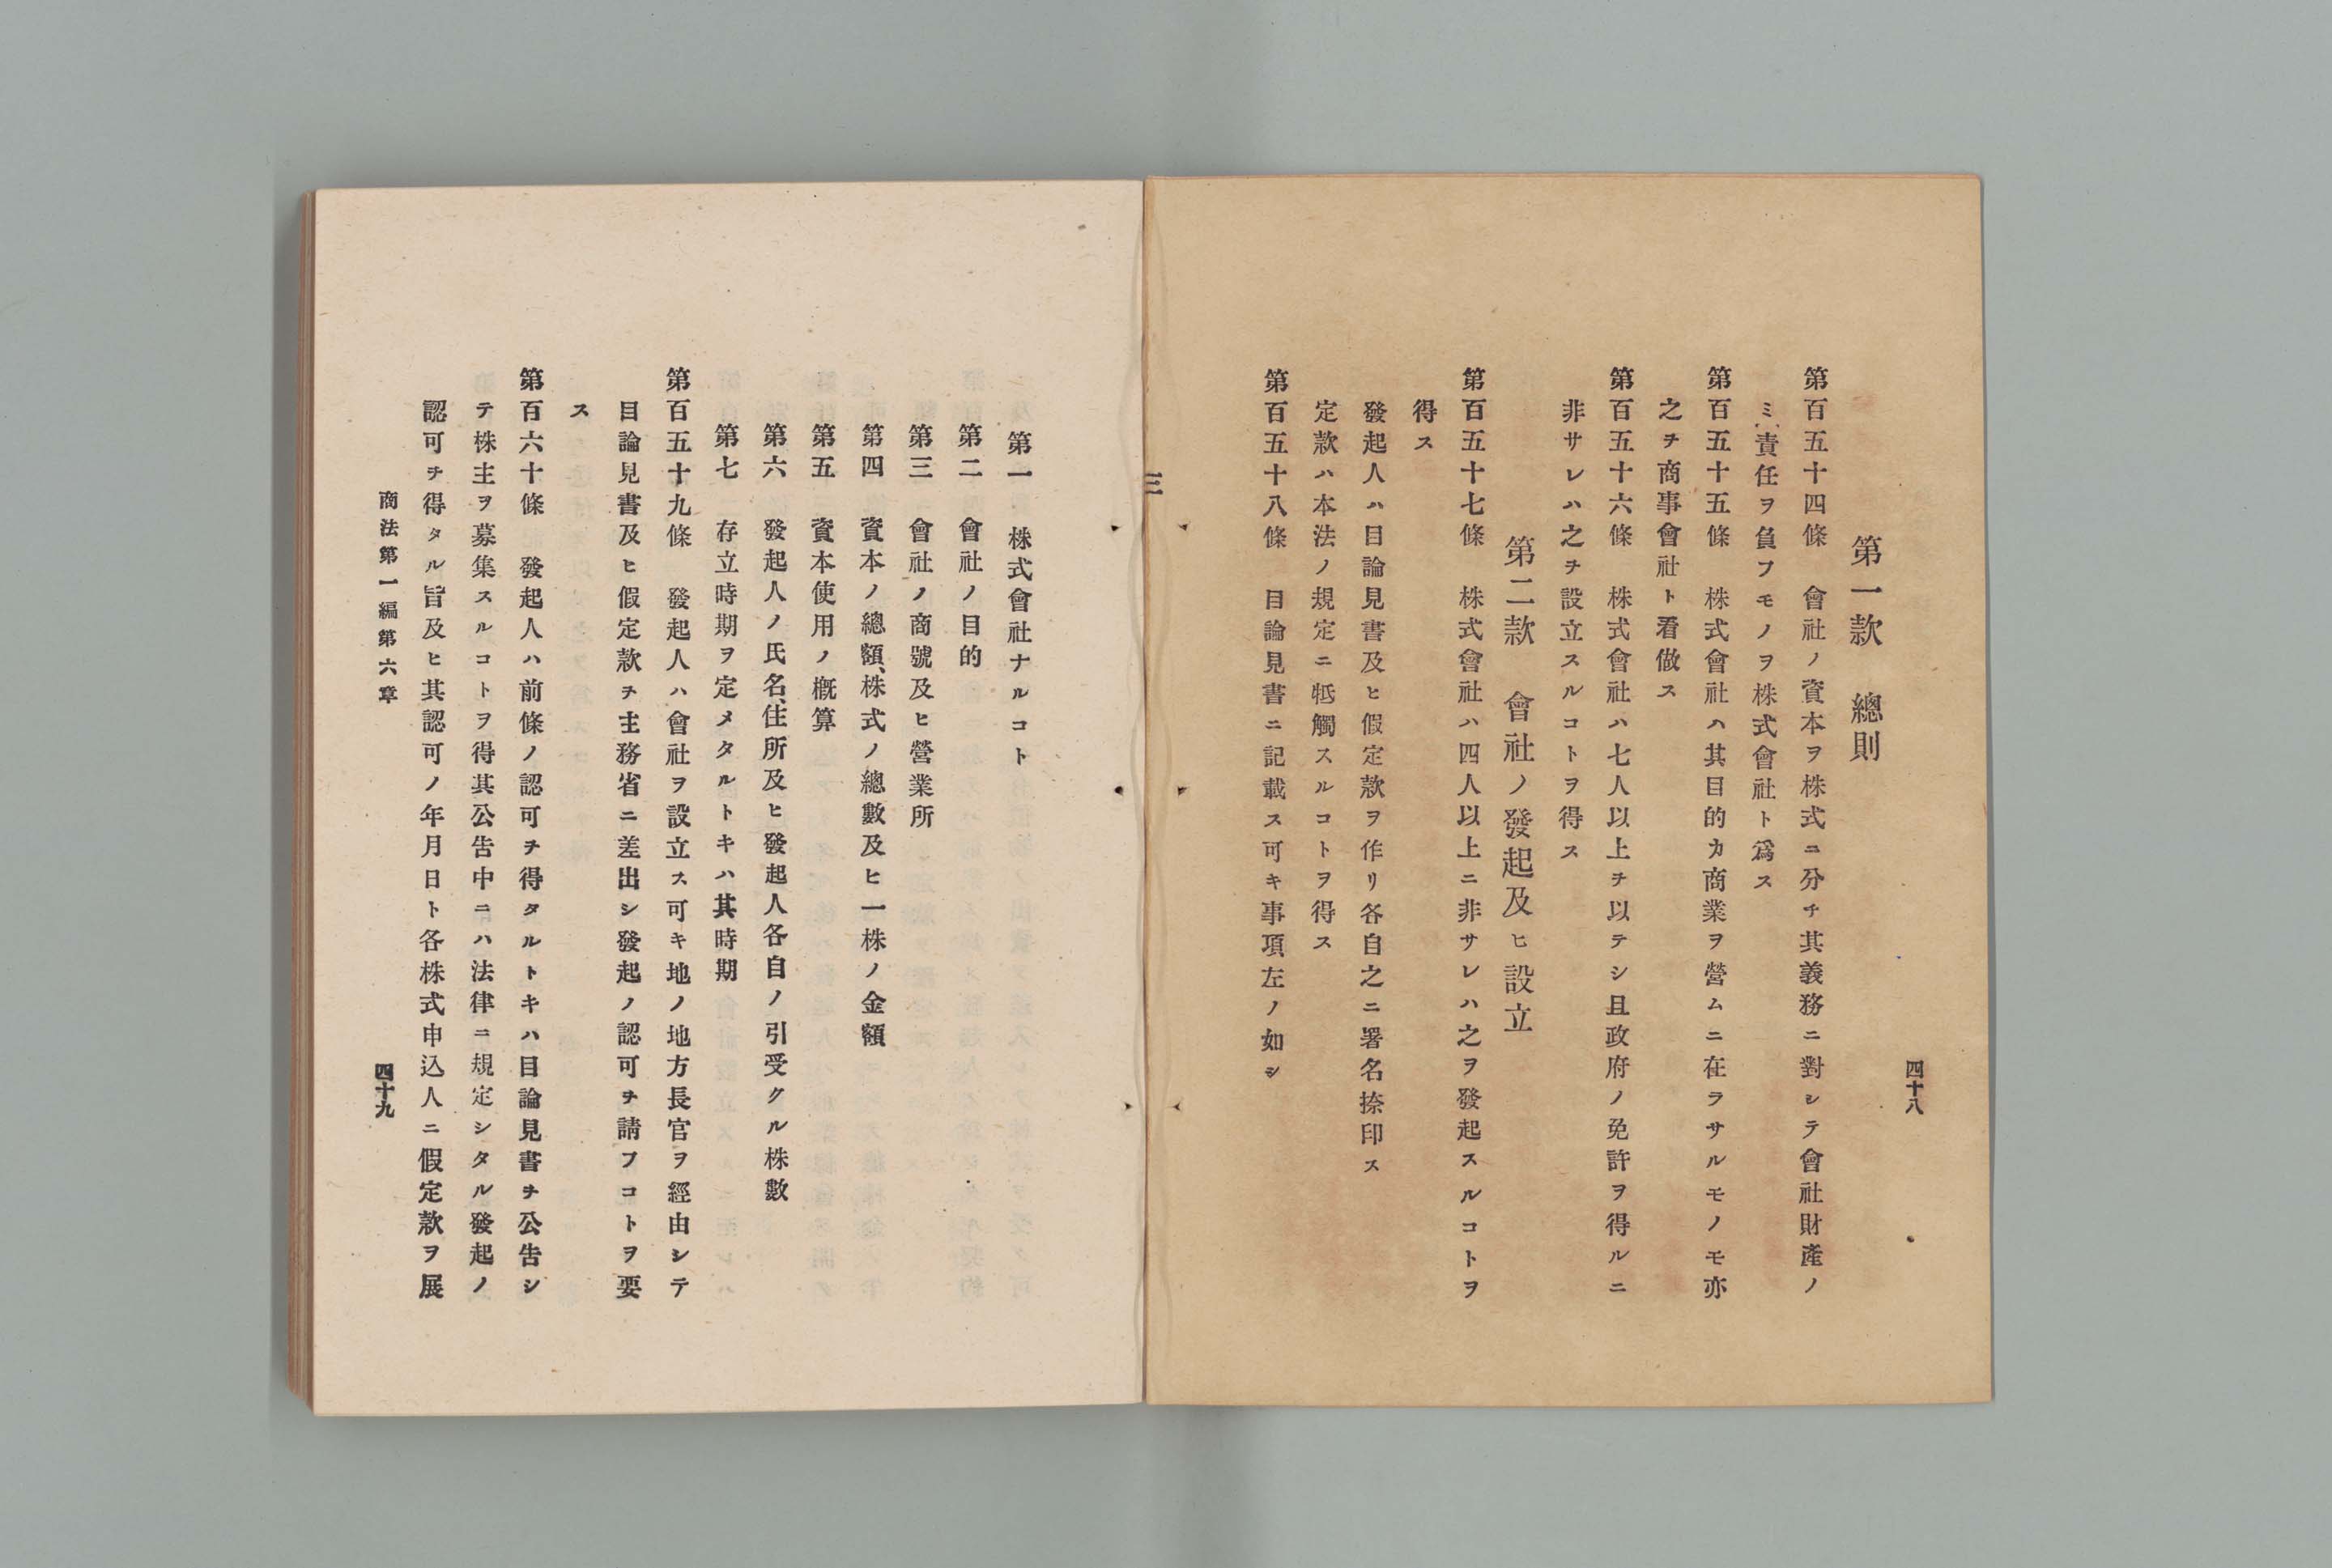 四十八
第一款　總則
第百五十四條　會社ノ資本ヲ株式ニ分チ其義務ニ對シテ會社財產ノ
ミ責任ヲ負フモノヲ株式會社ト爲ス
第百五十五條　株式會社ハ其目的カ商業ヲ營ムニ在ラサルモノモ亦
之ヲ商事會社ト看做ス
第百五十六條　株式會社ハ七人以上ヲ以テシ且政府ノ免許ヲ得ルニ
非サレハ之ヲ設立スルコトヲ得ス
第二款　會社ノ發起及ヒ設立
第百五十七條　株式會社ハ四人以上ニ非サレハ之ヲ發起スルコトヲ
得ス
發起人ハ目論見書及ヒ假定款ヲ作リ各自之ニ署名捺印ス
定款ハ本法ノ規定ニ牴觸スルコトヲ得ス
第百五十八條　目論見書ニ記載ス可キ事項左ノ如シ
三
第一　株式會社ナルコト
第二　會社ノ目的
第三　會社ノ商號及ヒ營業所
第四　資本ノ總額、株式ノ總數及ヒ一株ノ金額
第五　資本使用ノ槪算
第六　發起人ノ氏名、住所及ヒ發起人各自ノ引受クル株數
第七　存立時期ヲ定メタルトキハ其時期
第百五十九條　發起人ハ會社ヲ設立ス可キ地ノ地方長官ヲ經由シテ
目論見書及ヒ假定款ヲ主務省ニ差出シ發起ノ認可ヲ請フコトヲ要
ス
第百六十條　發起人ハ前條ノ認可ヲ得タルトキハ目論見書ヲ公告シ
テ株主ヲ募集スルコトヲ得其公告中ニハ法律ニ規定シタル發起ノ
認可ヲ得タル旨及ヒ其認可ノ年月日ト各株式申込人ニ假定款ヲ展
商法第一編第六章
四十九